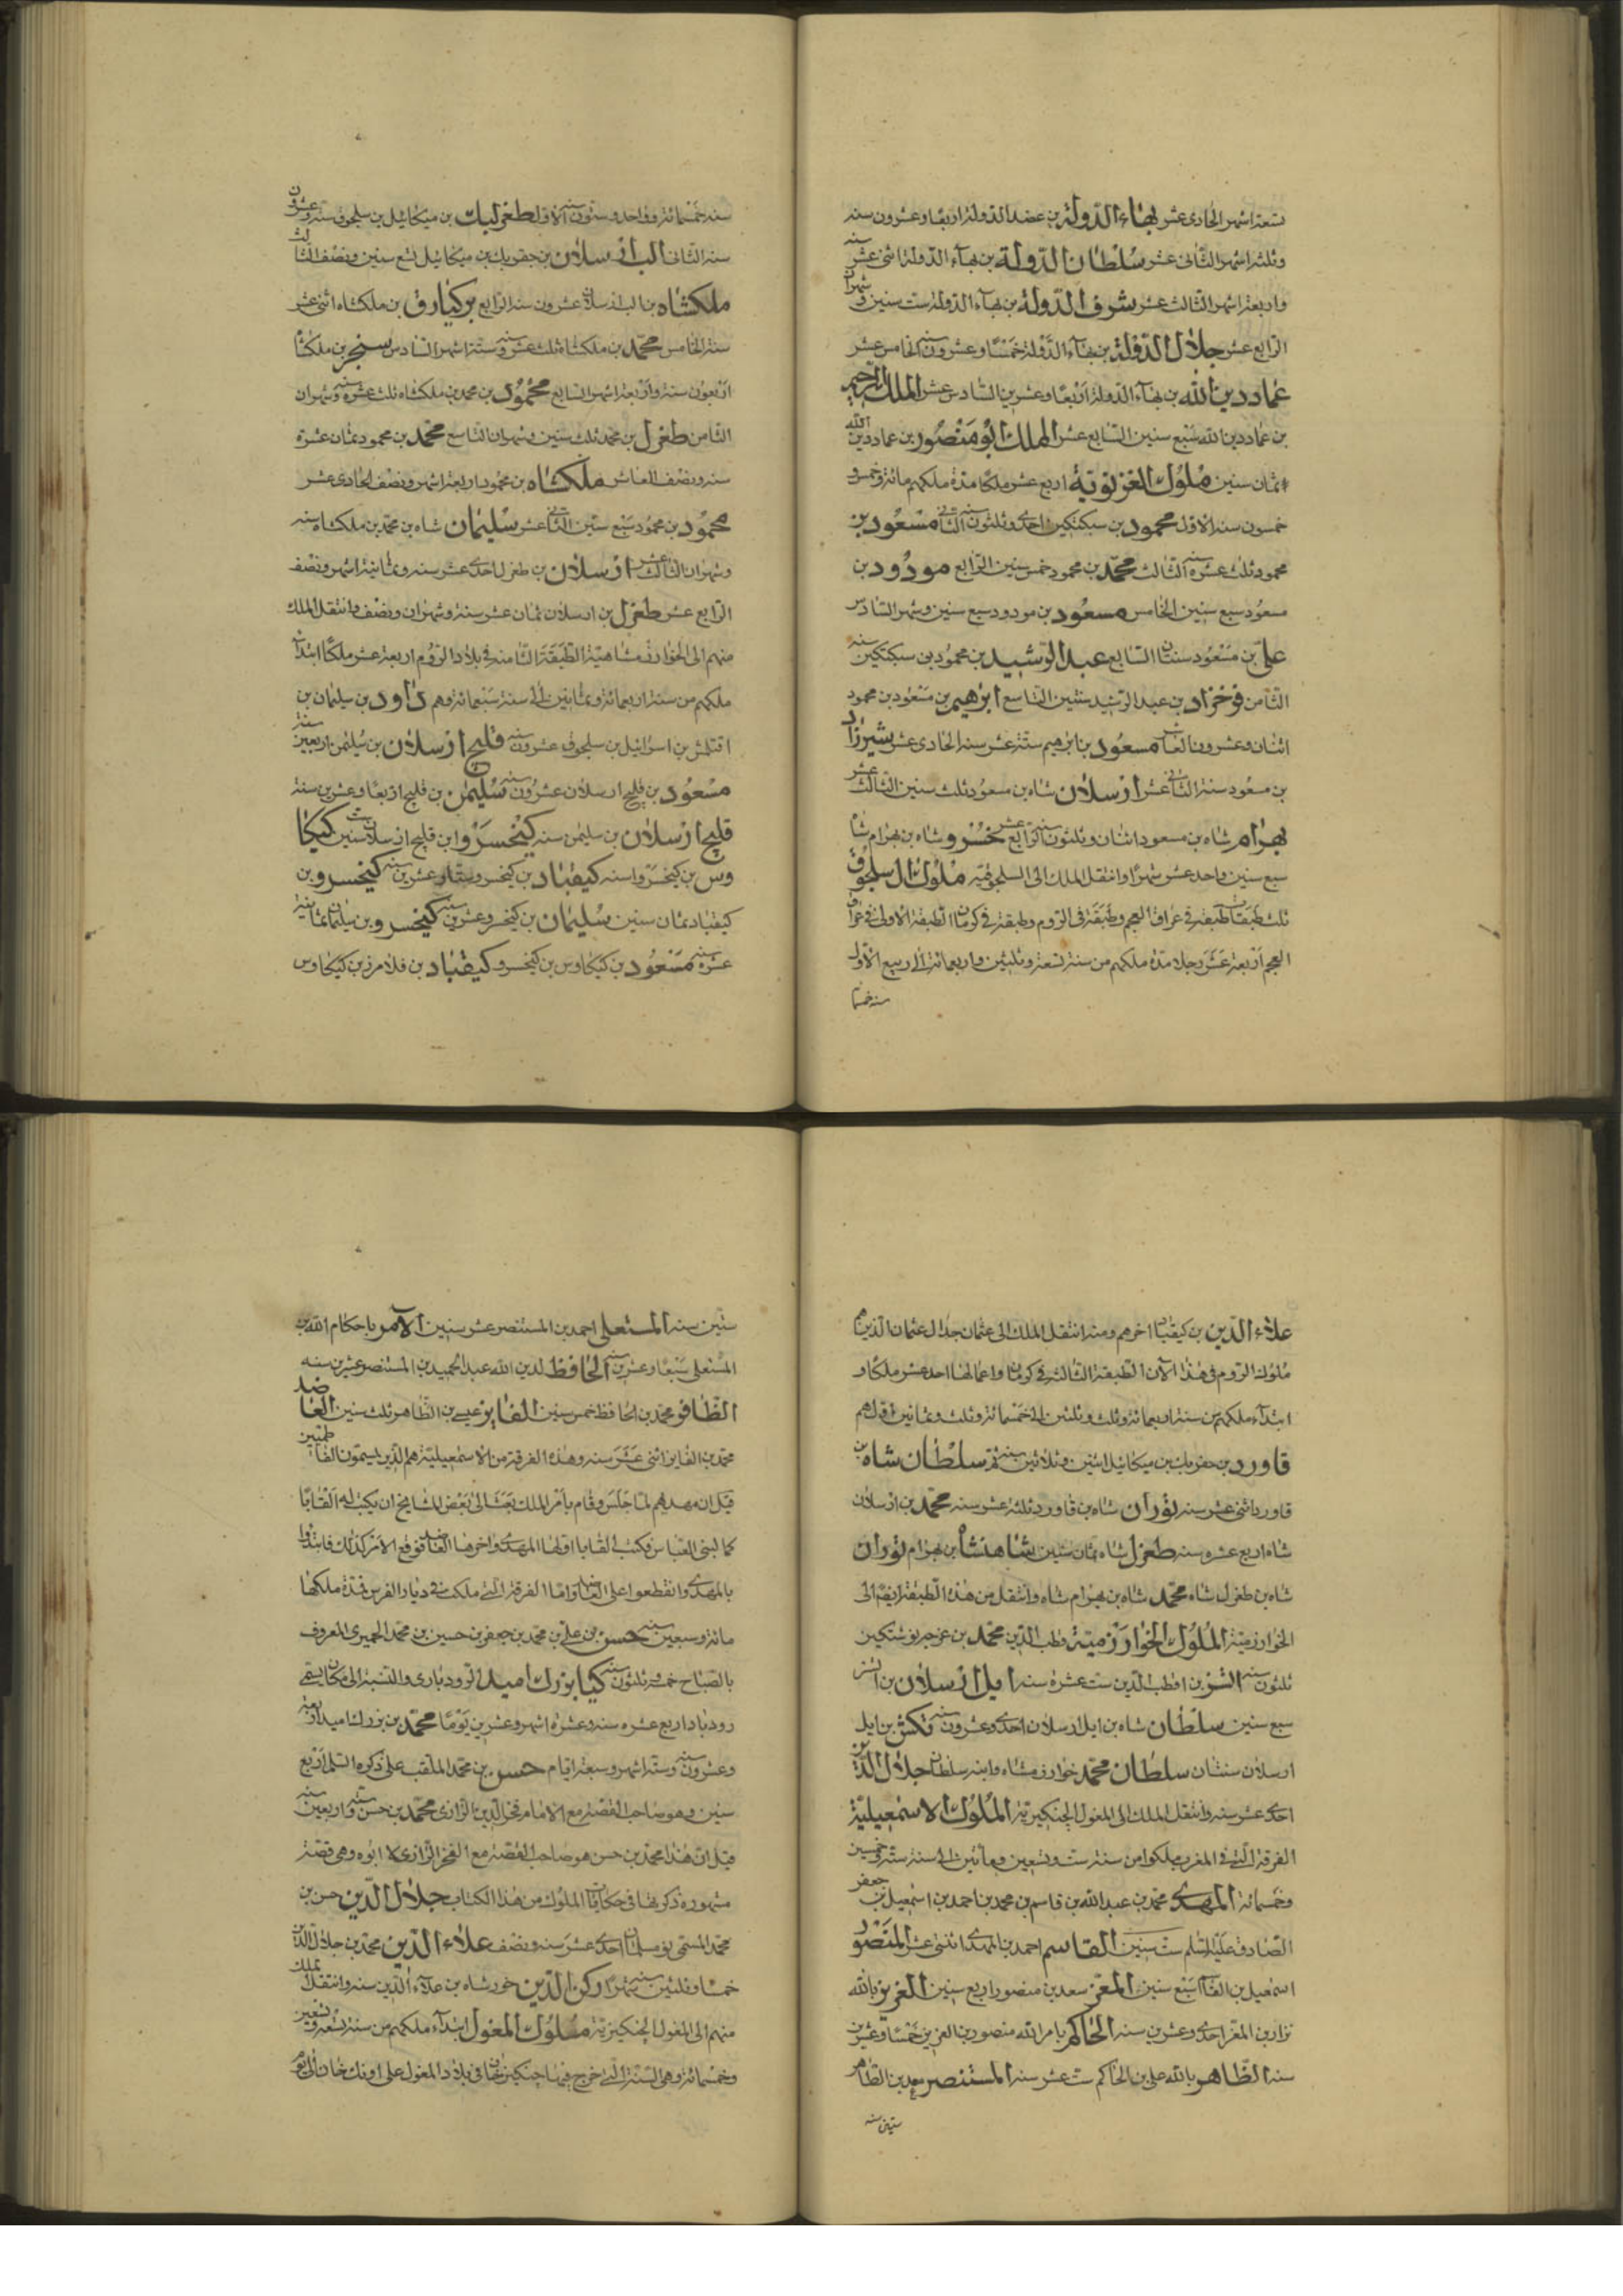 تسعة اشهر الحادى عشر بهاء الدولة بن عضد الدولة اربعا وعشرون سنه
وثلثه اشهر الثانى عشر سلطان الدولة بن بهآء الدولة اثنى عشر سنه
واربعة اشهر الثالث عشر شرف الدولة بن بهآء الدولة ست سنين وشهران
الرابع عشر جلال الدولة بن بهآء الدولة خمسًا وعشرون سنه الخامس عشر
عماد دين الله بن بهآء الدولة اربعًا وعشرين السادس عشر الملك الرحيم
بن عماد دين الله سبع سنين السابع عشر الملك ابو منصور بن عماد دين الله
ثمان سنين ملوك الغزنوية اربع عشر ملكًا مدة ملكهم مائة وخمس و
خمسون سنه الاول محمود بن سبكتكين احدى وثلثون سنه الثانى مسعود بن
محمود ثلث عشره سنه الثالث محمد بن محمود خمس سنين الرابع مودود بن
مسعود سبع سنين الخامس مسعود بن مودود سبع سنين وشهر السادس
على بن مسعود سنتان السابع عبد الرشيد بن محمود بن سبكتكين سنه
الثامن فرخزاد بن عبد الرشيد سنتين التاسع ابرهيم بن مسعود بن محمود
اثنان وعشرون العاشر مسعود بن ابرهيم ستة عشر سنه الحادى عشر شيرزاد
بن مسعود سنة الثانى عشر ارسلان شاه بن مسعود ثلث سنين الثالث عشر
بهرام شاه بن مسعود اثنان وثلثون سنه الرابع عشر خسرو شاه بن بهرام شاه
سبع سنين واحد عشر شهرًا وانتقل الملك الى السلجوقيه ملوك ال سلجوق
ثلث طبقات طبقه فى عراق العجم وطبقة فى الروم وطبقة فى كرمان الطبقة الاولى فى عراق
العجم اربعة عشر رجلا مدة ملكهم من سنة تسعة وثلثين واربعمائة الى ربيع الاول
سنه خمسمائه
سنه خمسمائة وواحد وستون سنه الاول طغرلبك بن ميكائيل بن سلجوق ستة وعشرون
سنه الثانى الب ارسلان بن جفربك بن ميكائيل تسع سنين ونصف الثالث
ملكشاه بن الب ارسلان عشرون سنه الرابع بركيارق بن ملكشاه اثنى عشر
سنة الخامس محمد بن ملكشاه ثلث عشر سنه وستة اشهر السادس سنجر بن ملكشاه
اربعون سنة واربعة اشهر السابع محمود بن محمد بن ملكشاه ثلث عشرة سنه وشهران
الثامن طغرل بن محمد ثلث سنين وشهران التاسع محمد بن محمود ثمان عشرة
سنه ونصف العاشر ملكشاه بن محمود اربعة اشهر ونصف الحادى عشر
محمود بن محمود سبع سنين الثانى عشر سليمان شاه بن محمد بن ملكشاه سنه
وشهران الثالث عشر ارسلان بن طغرل احدى عشر سنه وثمانية اشهر ونصف
الرابع عشر طغرل بن ارسلان ثمان عشر سنة وشهران ونصف وانتقل الملك
منهم الى الخوارزمشاهية الطبقة الثامنه فى بلاد الروم اربعة عشر ملكًا ابتدآ
ملكهم من سنة اربعمائة وثمانين الى سنة سبعمائة وهم داود بن سليمان بن
اقتلمش بن اسرائيل بن سلجوق عشرون سنه قليج ارسلان بن سليمن اربعين سنة
مسعود بن قليج ارسلان عشرون سنه سليمن بن قليج اربعًا وعشرين سنة
قليج ارسلان بن سليمن سنه كيخسرو ابن قليج ارسلان ست سنين كيكا
وس بن كيخسرو سنه كيقباد بن كيخسرو ستا وعشرين سنه كيخسرو بن
كيقباد ثمان سنين سليمان بن كيخسرو عشرين سنه كيخسرو بن سليمان ثمانية
عشرة سنه مسعود بن كيكاوس بن كيخسرو كيقباد بن فلامرز بن كيكاوس
علاء الدين بن كيقباد اخرهم ومنه انتقل الملك الى عثمان جد ال عثمان الذين هم
ملوك الروم فى هذا الآن الطبقة الثالثة فى كرمان واعمالها احد عشر ملكًا و
ابتدآء ملكهم من سنة اربعمائة وثلث وثلثين الى خمسمائة وثلث وثمانين اولهم
قاورد بن جفربك بن ميكائيل اثنين وثلاثين سنه ثم سلطان شاه بن
قاورد اثنى عشر سنه توران شاه بن قاورد ثلثة عشر سنه محمد بن ارسلان
شاه اربع عشره سنه طغرل شاه ثمان سنين شاهنشاه بن بهرام توران
شاه بن طغرل شاه محمد شاه بن بهرام شاه وانتقل من هذه الطبقة ايضا الى
الخوارزمية الملوك الخوارزمية قطب الدين محمد بن نوشتكين
ثلثون سنه اتسز بن قطب الدين ست عشره سنه ايل ارسلان بن اتسز
سبع سنين سلطان شاه بن ايل ارسلان احدى وعشرون سنه تكش بن ايل
ارسلان سنتان سلطان محمد خوارزمشاه وابنه سلطان جلال الدين
احدى عشر سنه وانتقل الملك الى المغول الجنكيزية الملوك الاسمعيلية
الفرقة التى فى المغرب ملكوا من سنة ست وتسعين ومأتين الى سنة ستة وخمسين
وخمسمائة المهدى محمد بن عبد الله بن قاسم بن محمد بن احمد بن اسمعيل بن جعفر
الصادق عليه السلم ست سنين القاسم احمد بن المهدى اثنتى عشر المنصور
اسمعيل بن القآ سبع سنين المعز سعد بن منصور اربع سنين العزيز بالله
نزار بن المعز احدى وعشرين سنه الحاكم بامر الله منصور بن العزيز خمسًا وعشرين
سنه الظاهر بالله على بن الحاكم ست عشر سنه المستنصر معد بن الظاهر
ستين سنه
ستين سنه المستعلى احمد بن المستنصر عشر سنين الآمر باحكام الله بن
المستعلى سبعًا وعشرين سنه الحافظ لدين الله عبد الحميد بن المستنصر عشرين سنه
الظافر محمد بن الحافظ خمس سنين الفايز عيسى بن الظاهر ثلث سنين العاضد
محمد بن الفايز اثنى عشر سنه وهذه الفرقة من الاسمعيلية هم الذين يسمون الفاطميين
قيل ان مهديهم لما جلس وقام بأمر الملك بعث الى بعض المشايخ ان يكتب له القابًا
كما لبنى العباس فكتب القابا اولها المهدى واخرها العاضد فوقع الامر كذلك فابتدؤا
بالمهدى وانقطعوا على العاضد واما الفرقة التى ملكت فى ديار الفرس فمدة ملكها
مائة وسبعين سنه حسن بن على بن محمد بن جعفر بن حسين بن محمد الحميرى المعروف
بالصباح خمسة وثلثون سنه كيا بزرك اميد الرودبارى والنسبة الى مكان يسمى
رودبار اربع عشره سنه وعشرة اشهر وعشرين يومًا محمد بن بزرك اميد اربعة
وعشرون سنه وستة اشهر وسبعة ايام حسن بن محمد الملقب على ذكره السلم اربع
سنين وهو صاحب القصة مع الامام فخر الدين الرازى محمد بن حسن ستة واربعين سنه
قيل ان هذا محمد بن حسن هو صاحب القصة مع الفخر الرازى لا ابوه وهى قصة
مشهوره ذكرتها فى حكايات الملوك من هذا الكتاب جلال الدين حسن بن
محمد المسمى نو مسلمان احدى عشر سنه ونصف علاء الدين محمد بن جلال الدين
خمسًا وثلثين سنه وشهرًا ركن الدين خورشاه بن علآء الدين سنه وانتقل الملك
منهم الى المغول الجنكيزية ملوك المغول ابتدآء ملكهم من سنة تسعة وتسعين
وخمسمائة وهى السنة التى خرج فيها جنكيز خان فى بلاد المغول على اونك خان الى